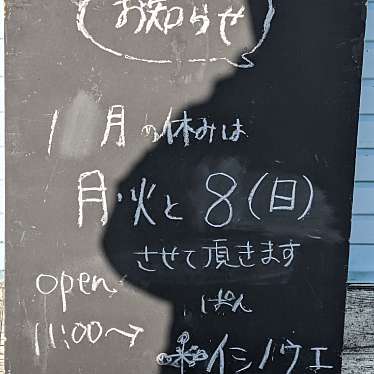 お知らせ
1月の休みは
月・火と8(日)
させて頂きます
open
11:00〜
ぱん
イシノウエ